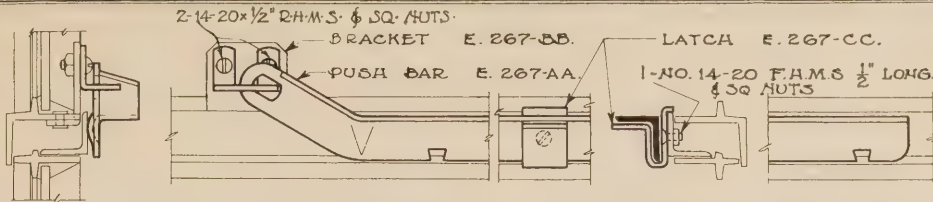 2-14-20×1/2" R.H.M.S. & SQ. NUTS.
BRACKET E. 267-BB.
PUSH BAR E. 267-AA.
LATCH E. 267-CC.
1-NO. 14-20 F.H.M.S 1/2" LONG.
& SQ NUTS